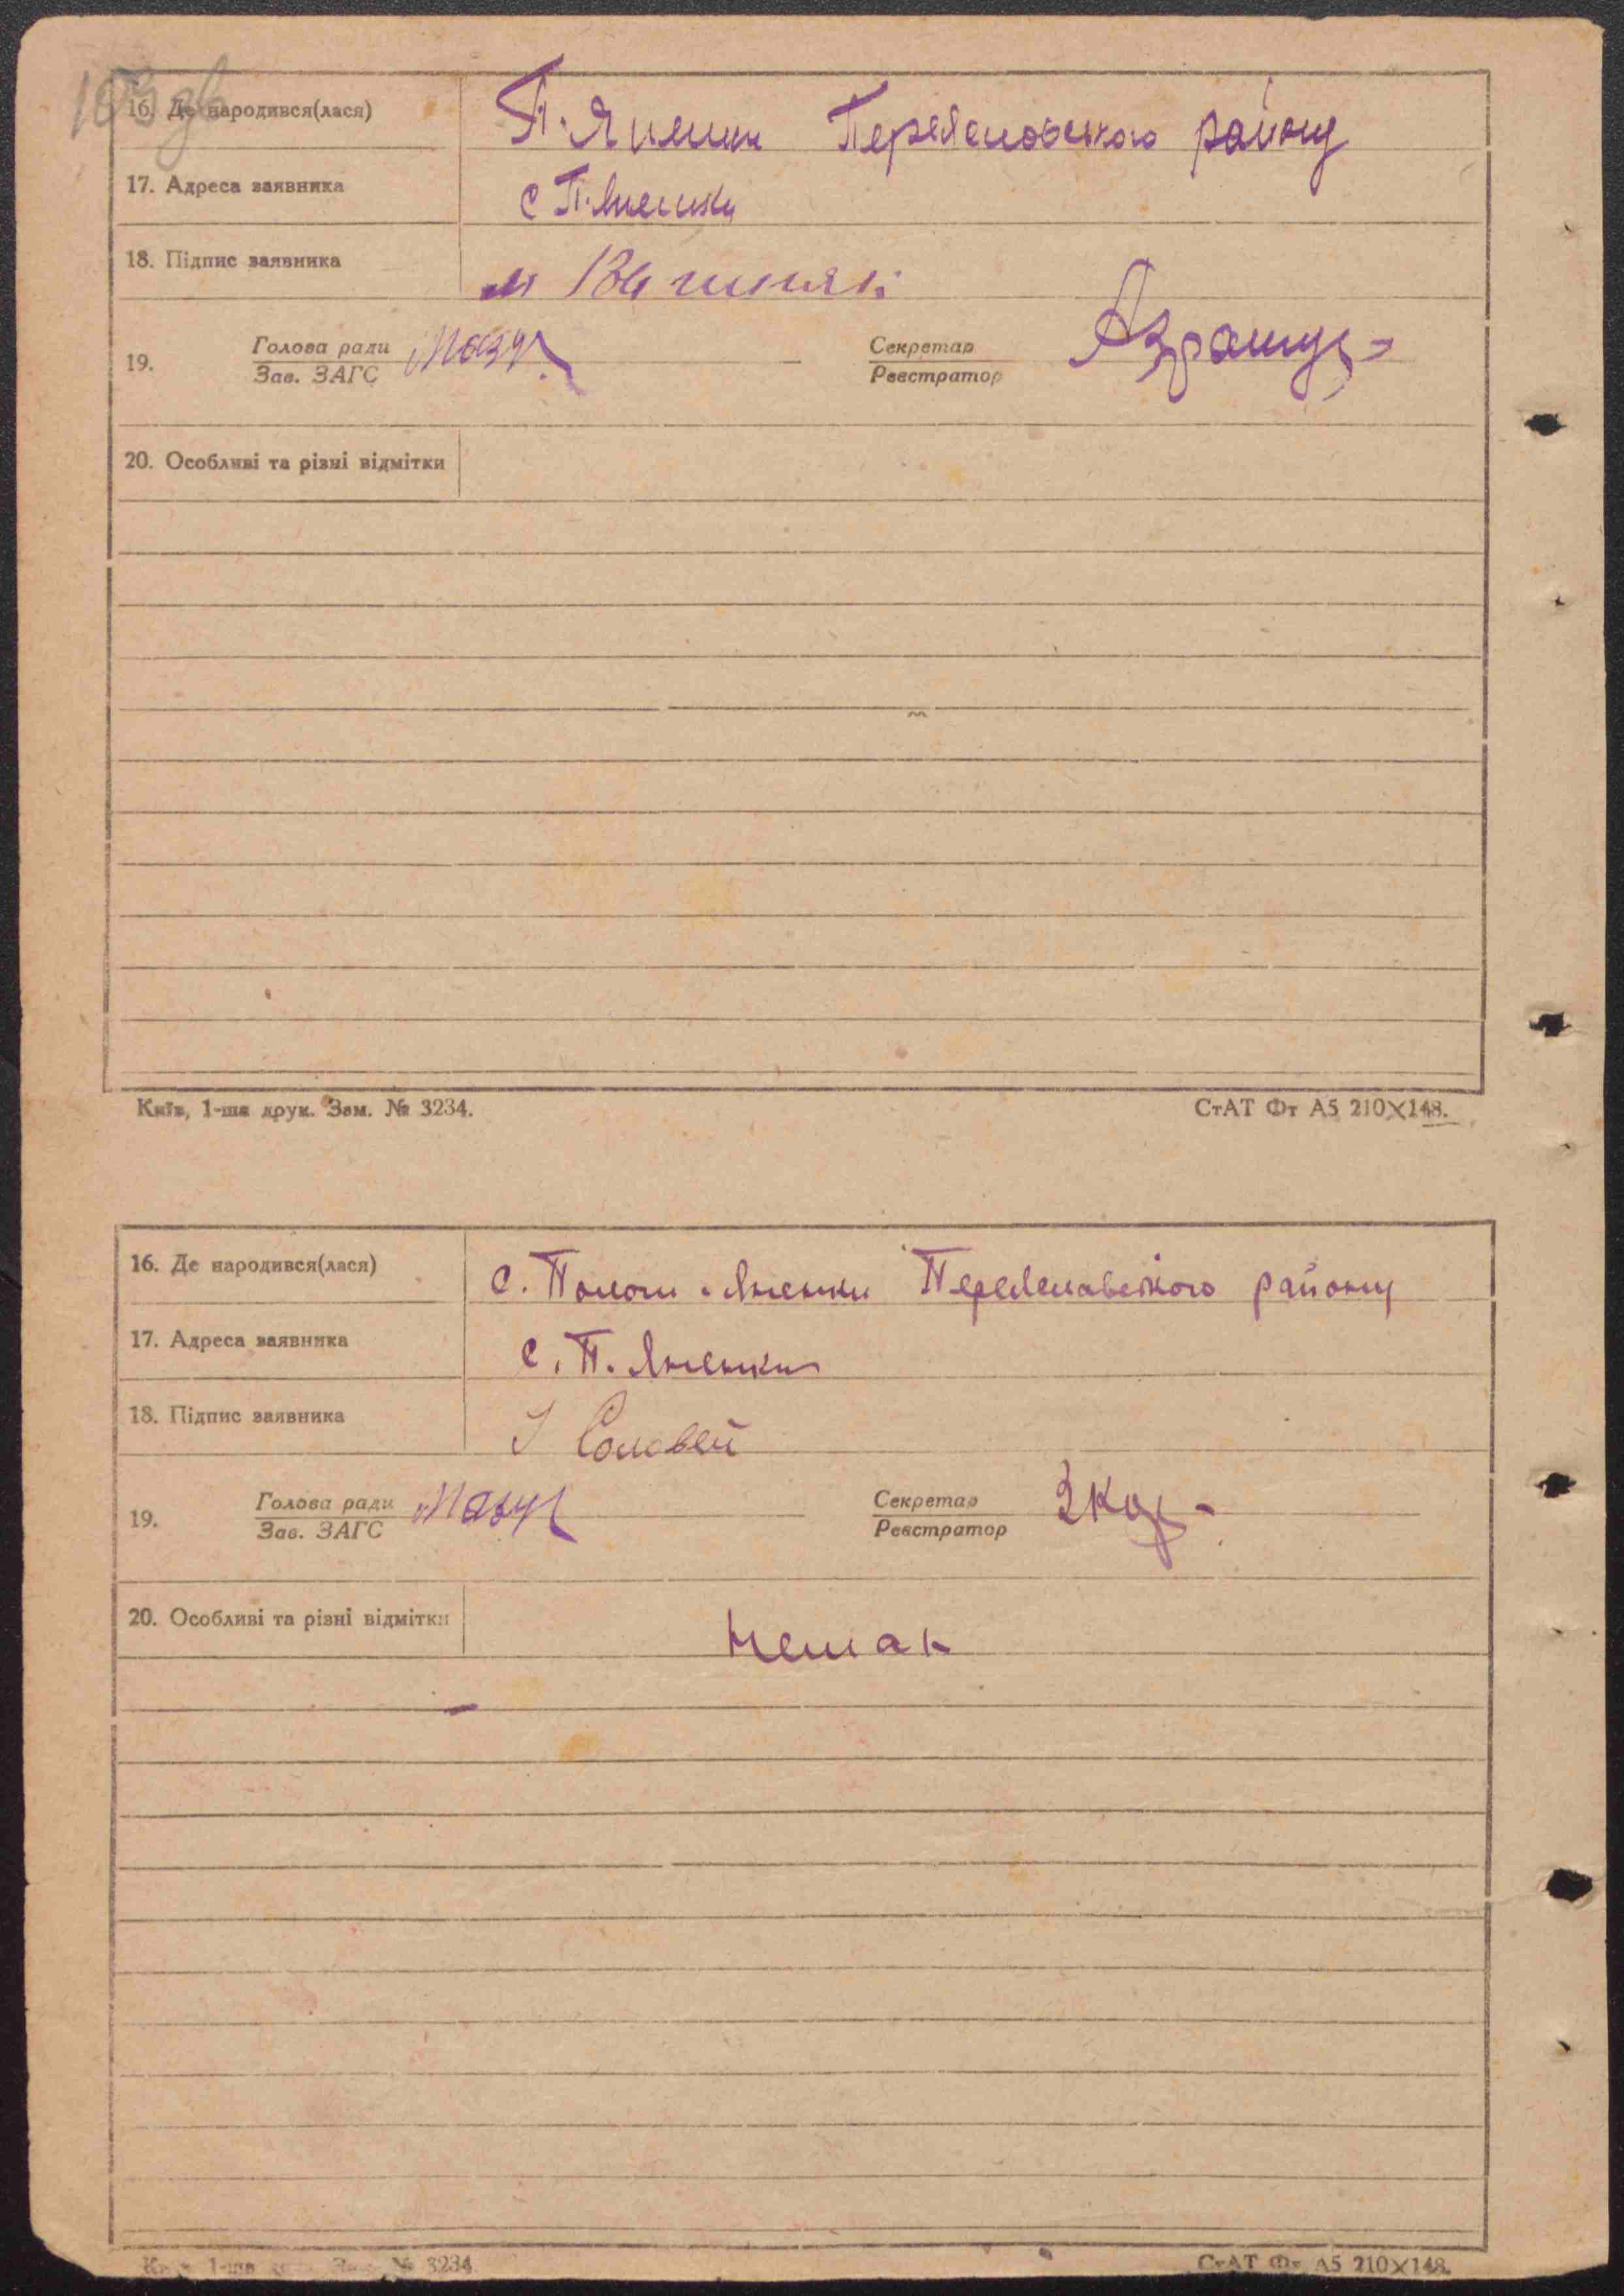 103 зв
16. Де народився(лася) П. Яненки Переяславського району
17. Адреса заявника с П. Яненки
18. Підпис заявника
19. Голова ради Мазур Секретар
Зав. ЗАГС Реєстратор
20. Особливі та різні відмітки
Київ, 1-ша друк. Зам. № 3234. СтАТ Фт А5 210×148.
16. Де народився(лася) с. Пологи-Яненки Переяславського району
17. Адреса заявника с. П. Яненки
18. Підпис заявника І Соловей
19. Голова ради Мазур Секретар
Зав. ЗАГС Реєстратор
20. Особливі та різні відмітки Немає
1-ша № 3234 СтАТ Фт А5 210×148.